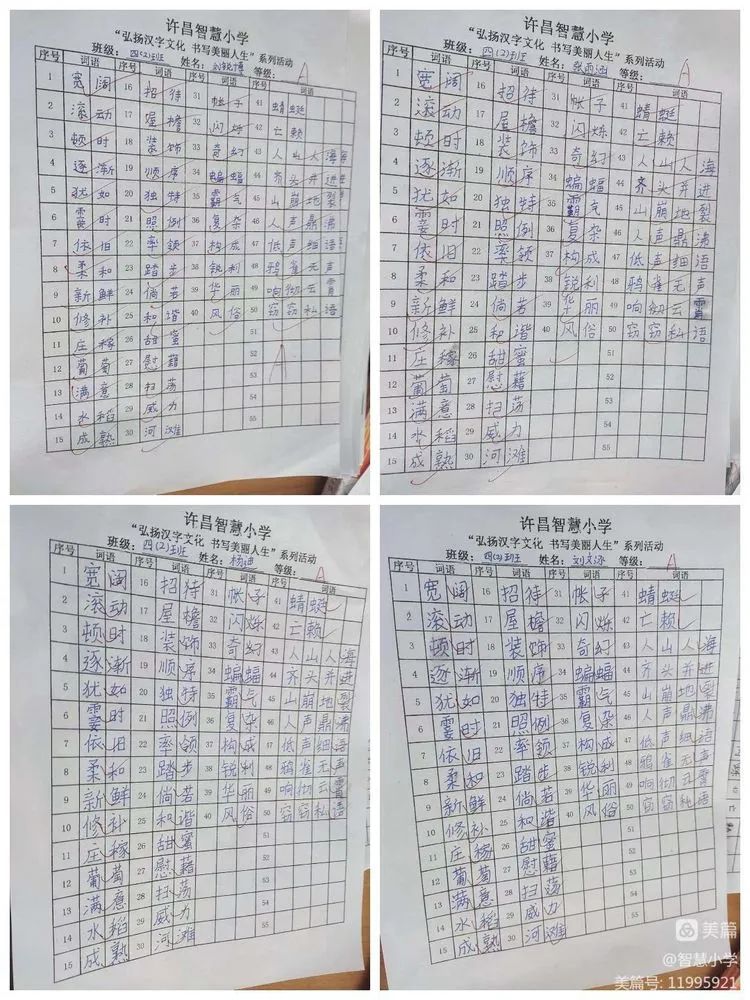 许昌智慧小学
“弘扬汉字文化 书写美丽人生”系列活动
班级：四(2)班 姓名：刘锐博 等级：A
序号 词语 序号 词语 序号 词语 序号 词语
1 宽阔 16 招待 31 帐子 41 蜻蜓
2 滚动 17 屋檐 32 闪烁 42 亡赖
3 顿时 18 装饰 33 奇幻 43 人山人海
4 逐渐 19 顺序 34 蝙蝠 44 齐头并进
5 犹如 20 独特 35 霸气 45 山崩地裂
6 霎时 21 照例 36 复杂 46 人声鼎沸
7 依旧 22 率领 37 构成 47 低声细语
8 柔和 23 踏步 38 锐利 48 鸦雀无声
9 新鲜 24 倘若 39 华丽 49 响彻云霄
10 修补 25 和谐 40 风俗 50 窃窃私语
11 庄稼 26 甜蜜 51
12 葡萄 27 慰藉 52
13 满意 28 扫荡 53
14 水稻 29 威力 54
15 成熟 30 河滩 55
许昌智慧小学
“弘扬汉字文化 书写美丽人生”系列活动
班级：四(2)班 姓名： 等级：A
序号 词语 序号 词语 序号 词语 序号 词语
1 宽阔 16 招待 31 帐子 41 蜻蜓
2 滚动 17 屋檐 32 闪烁 42 亡赖
3 顿时 18 装饰 33 奇幻 43 人山人海
4 逐渐 19 顺序 34 蝙蝠 44 齐头并进
5 犹如 20 独特 35 霸气 45 山崩地裂
6 霎时 21 照例 36 复杂 46 人声鼎沸
7 依旧 22 率领 37 构成 47 低声细语
8 柔和 23 踏步 38 锐利 48 鸦雀无声
9 新鲜 24 倘若 39 华丽 49 响彻云霄
10 修补 25 和谐 40 风俗 50 窃窃私语
11 庄稼 26 甜蜜 51
12 葡萄 27 慰藉 52
13 满意 28 扫荡 53
14 水稻 29 威力 54
15 成熟 30 河滩 55
许昌智慧小学
“弘扬汉字文化 书写美丽人生”系列活动
班级：四(2)班 姓名：杨迪 等级：A
序号 词语 序号 词语 序号 词语 序号 词语
1 宽阔 16 招待 31 帐子 41 蜻蜓
2 滚动 17 屋檐 32 闪烁 42 亡赖
3 顿时 18 装饰 33 奇幻 43 人山人海
4 逐渐 19 顺序 34 蝙蝠 44 齐头并进
5 犹如 20 独特 35 霸气 45 山崩地裂
6 霎时 21 照例 36 复杂 46 人声鼎沸
7 依旧 22 率领 37 构成 47 低声细语
8 柔和 23 踏步 38 锐利 48 鸦雀无声
9 新鲜 24 倘若 39 华丽 49 响彻云霄
10 修补 25 和谐 40 风俗 50 窃窃私语
11 庄稼 26 甜蜜 51
12 葡萄 27 慰藉 52
13 满意 28 扫荡 53
14 水稻 29 威力 54
15 成熟 30 河滩 55
许昌智慧小学
“弘扬汉字文化 书写美丽人生”系列活动
班级：四(2)班 姓名： 等级：A
序号 词语 序号 词语 序号 词语 序号 词语
1 宽阔 16 招待 31 帐子 41 蜻蜓
2 滚动 17 屋檐 32 闪烁 42 亡赖
3 顿时 18 装饰 33 奇幻 43 人山人海
4 逐渐 19 顺序 34 蝙蝠 44 齐头并进
5 犹如 20 独特 35 霸气 45 山崩地裂
6 霎时 21 照例 36 复杂 46 人声鼎沸
7 依旧 22 率领 37 构成 47 低声细语
8 柔和 23 踏步 38 锐利 48 鸦雀无声
9 新鲜 24 倘若 39 华丽 49 响彻云霄
10 修补 25 和谐 40 风俗 50 窃窃私语
11 庄稼 26 甜蜜 51
12 葡萄 27 慰藉 52
13 满意 28 扫荡 53
14 水稻 29 威力 54
15 成熟 30 河滩 55
美篇
@智慧小学
美篇号: 11995921